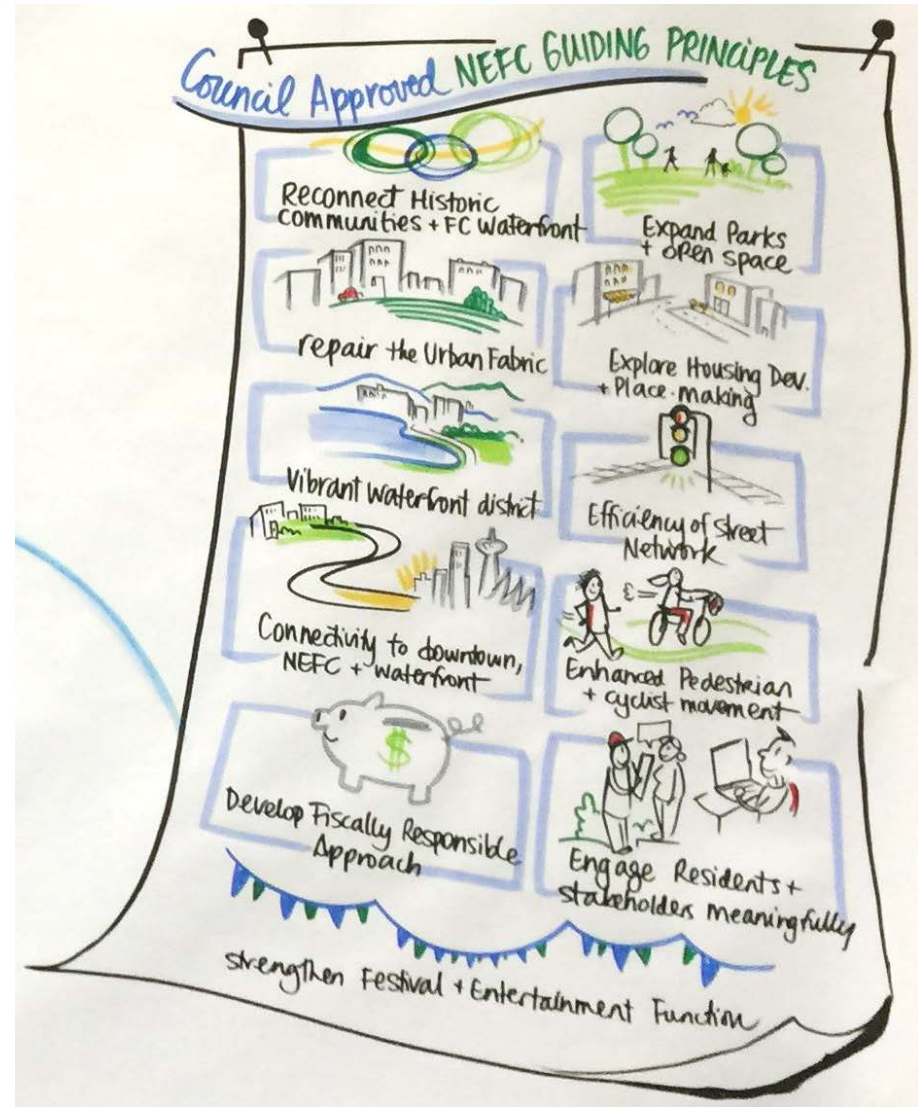 Council Approved NEFC GUIDING PRINCIPLES
Reconnect Historic
communities + FC Waterfront
Expand Parks
+ open space
repair the Urban Fabric
Explore Housing Dev.
+ Place-making
Vibrant waterfront district
Efficiency of street
Network
Connectivity to downtown,
NEFC + waterfront
Enhanced Pedestrian
+ cyclist movement
$
Develop Fiscally Responsible
Approach
Engage Residents +
stakeholders meaningfully
strengthen Festival + Entertainment Function